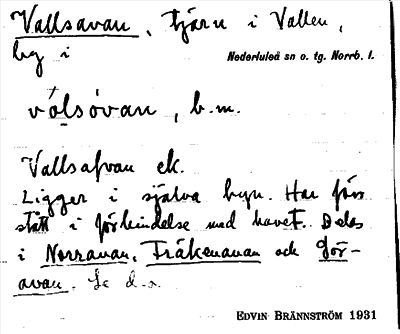 Vallsavan, tjärn i Vallen,
by i Nederluleå sn o. tg. Norrb. l.
vålsòvan, b.m.
Vallsafvan ek.
Ligger i själva byn. Har förr
stått i förbindelse med havet. Delas
i Norravan, Fräkenavan och Gör-
avan. Se d.o.
EDVIN BRÄNNSTRÖM 1931